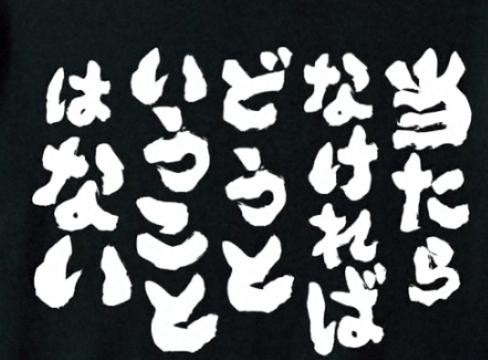 当たら
なければ
どうと
いうこと
はない